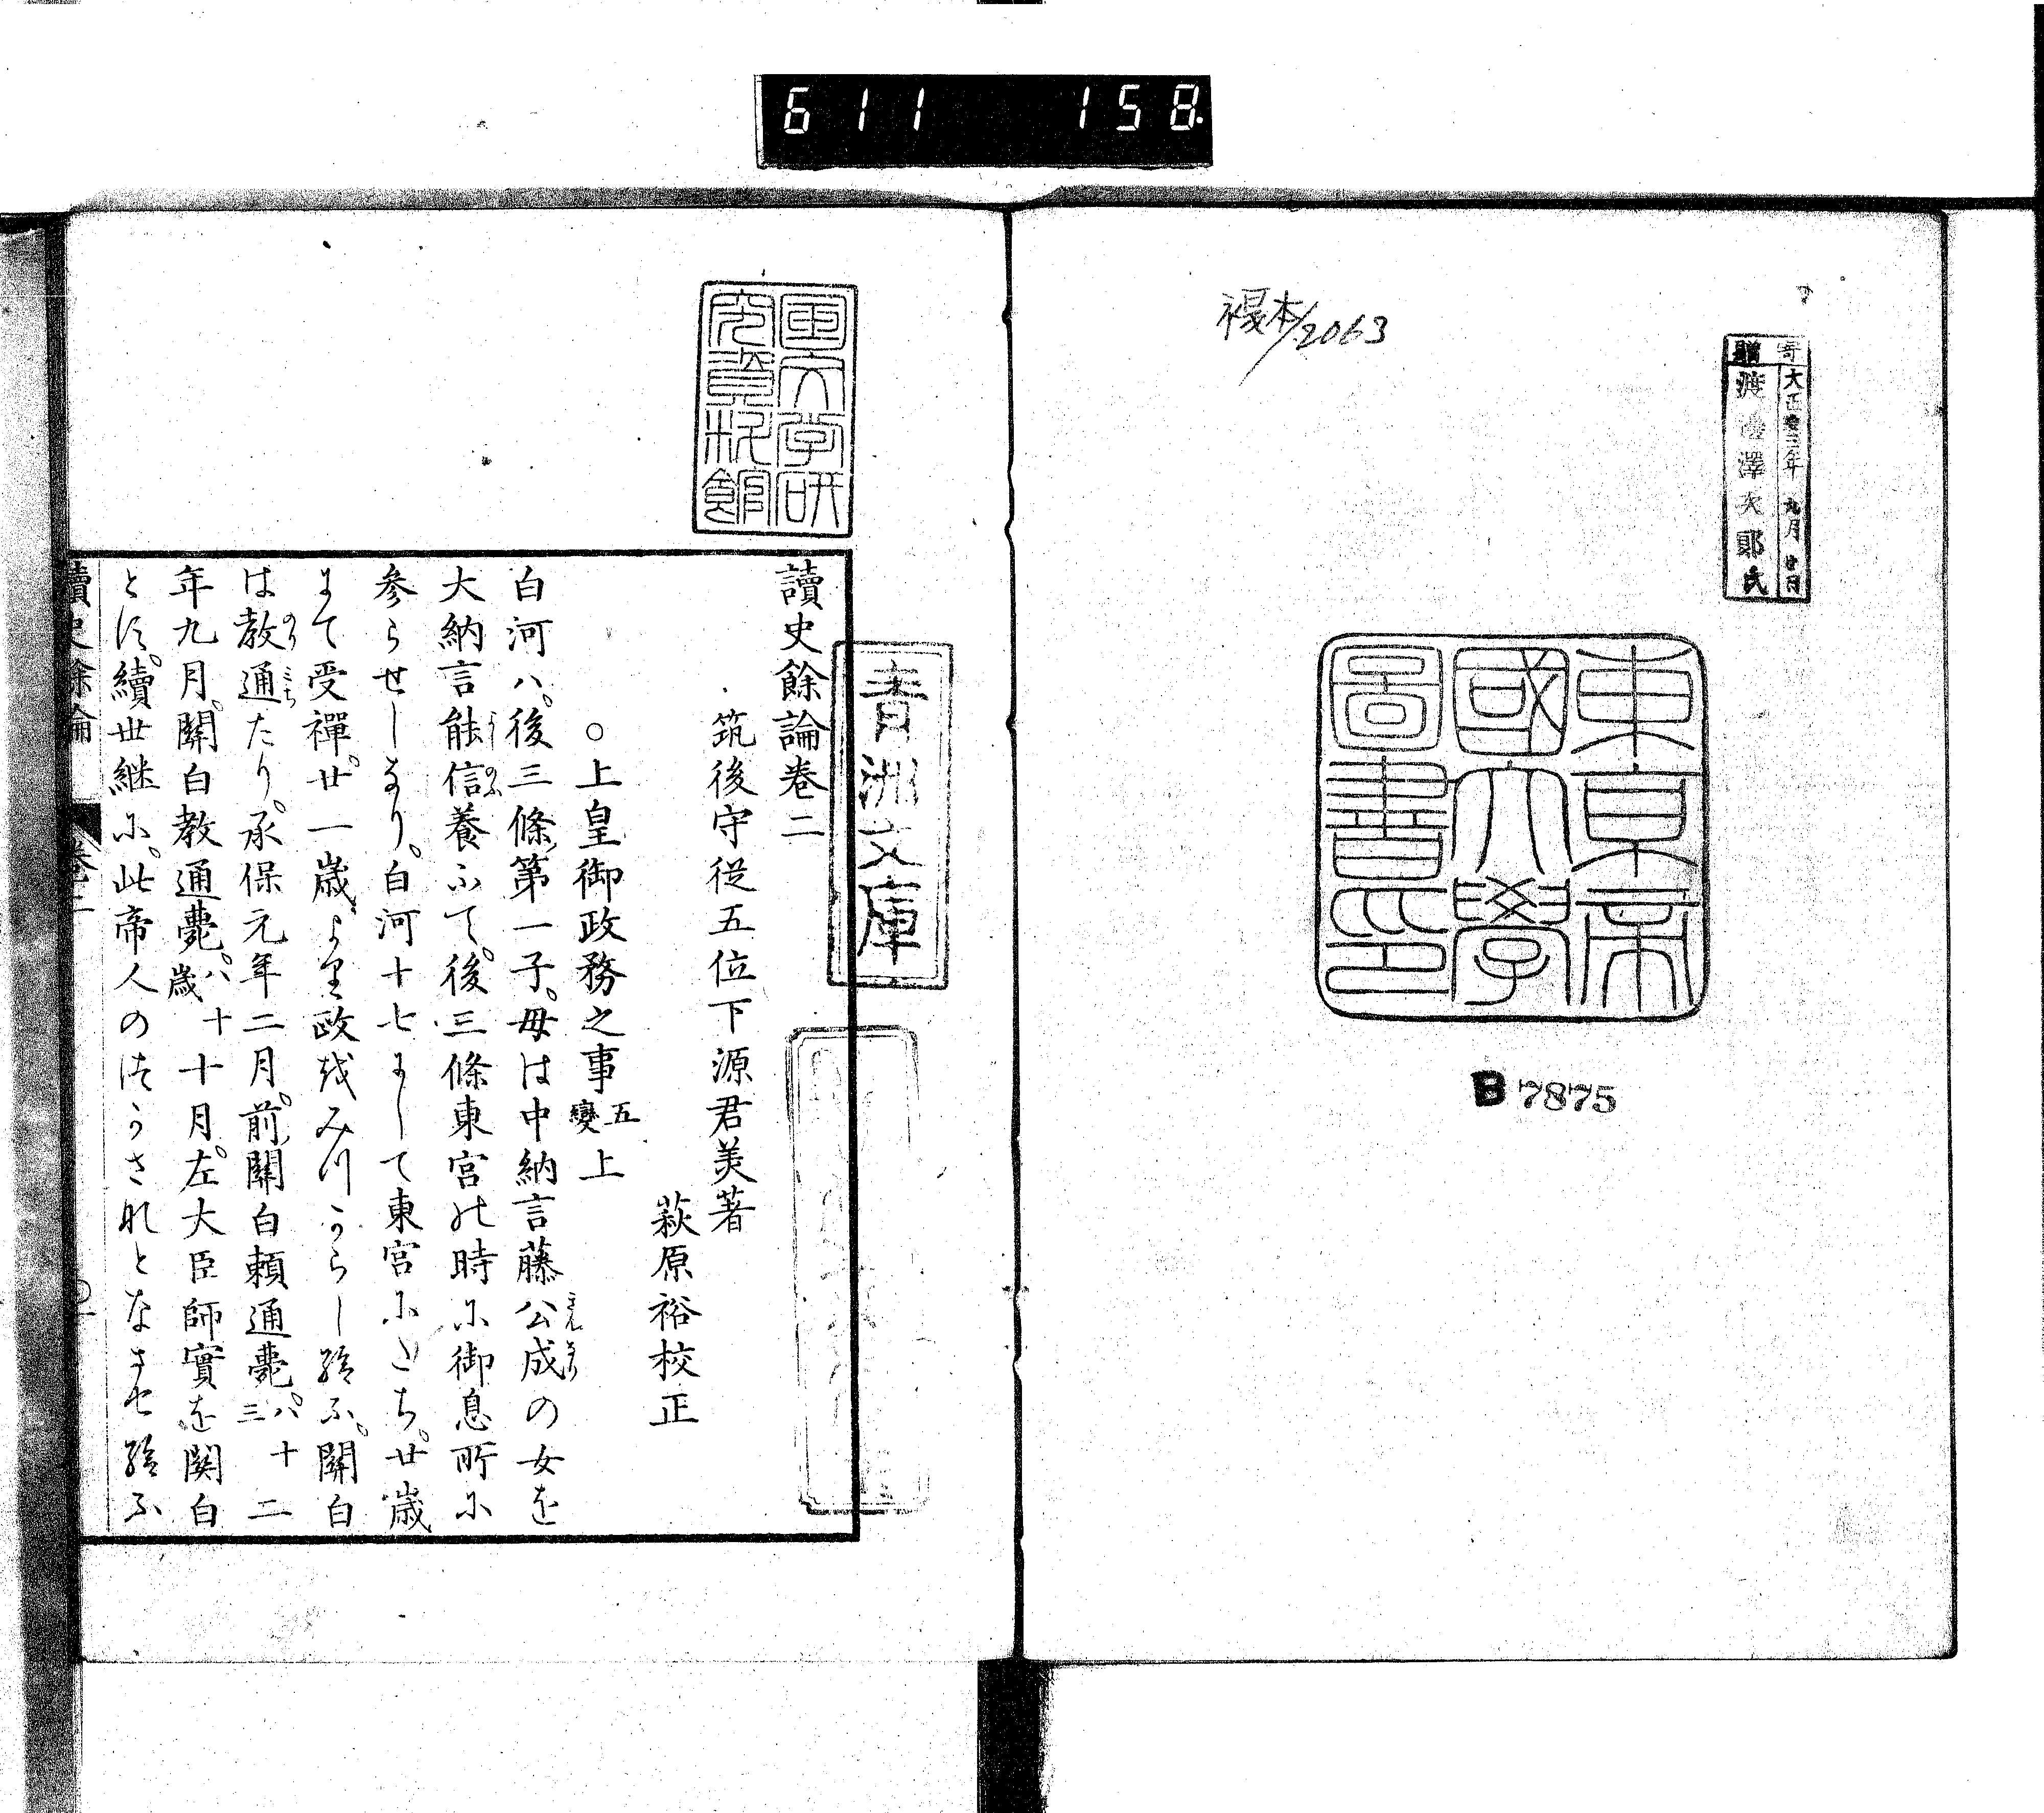 611 158
複本/2063
寄贈
大正十三年九月廿日
渡邊澤次郎氏
東京帝
國大學
圖書印
B 7875
國文学研
究資料館
青洲文庫
讀史餘論卷二
筑後守從五位下源君美著
萩原裕校正
○上皇御政務之事五變上
白河ハ。後三條第一子。母は中納言藤公成の女を
大納言能信養ふて。後三條東宮の時に御息所に
参らせしなり。白河十七にして東宮にたち。廿歳
にて受禪。廿一歳より政をみづからし給ふ。關白
は教通たり。承保元年二月。前關白頼通薨。八十三 二
年九月。關白教通薨。八十歳 十月。左大臣師實を関白
とす。續世継に。此帝人のにくうされとなませ給ふ
讀史餘論 卷二